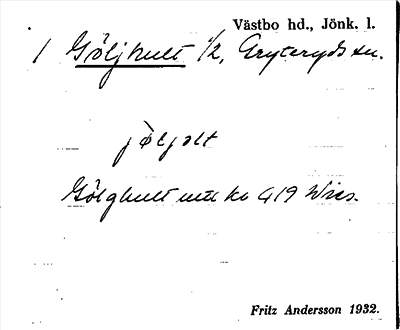 Västbo hd., Jönk. l.
1 Göljhult 1/2, Gryteryds sn.
jöljolt
Gölghult utt ko 419 Wies.
Fritz Andersson 1932.